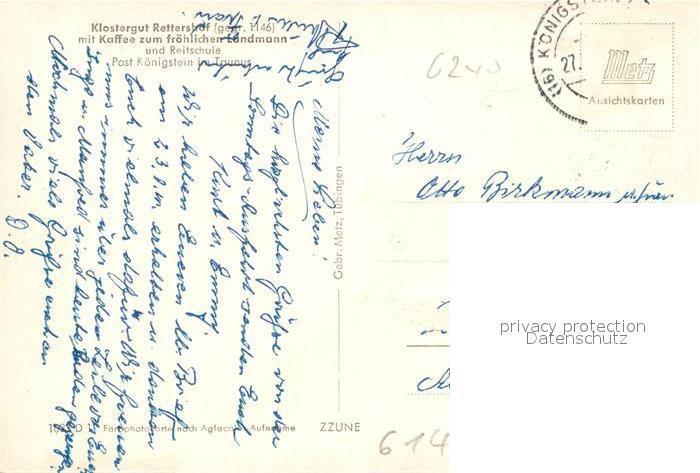 Klostergut Rettershof (gegr. 1146)
mit Kaffee zum fröhlichen Landmann
und Reitschule
Post Königstein im Taunus
Meine Lieben!
Die herzlichsten Grüße von der
Sonntags-Ausfahrt senden Euch
Kurt u. Emmy.
Wir haben Eueren lb. Brief
am 23.8. erhalten u. danken
Euch vielmals dafür. Wir freuen
uns immer über jeden Zeile von Euch
Inge u. Manfred sind heute
Nochmals viele Grüße
den Vater. D. O.
Gebr. Metz, Tübingen
(16) KÖNIGSTEIN
27.
Metz
Ansichtskarten
6240
Herrn
Otto Birkmann u. Frau
privacy protection
Datenschutz
614
Farbphotokarte nach Agfacolor-Aufnahme
ZZUNE